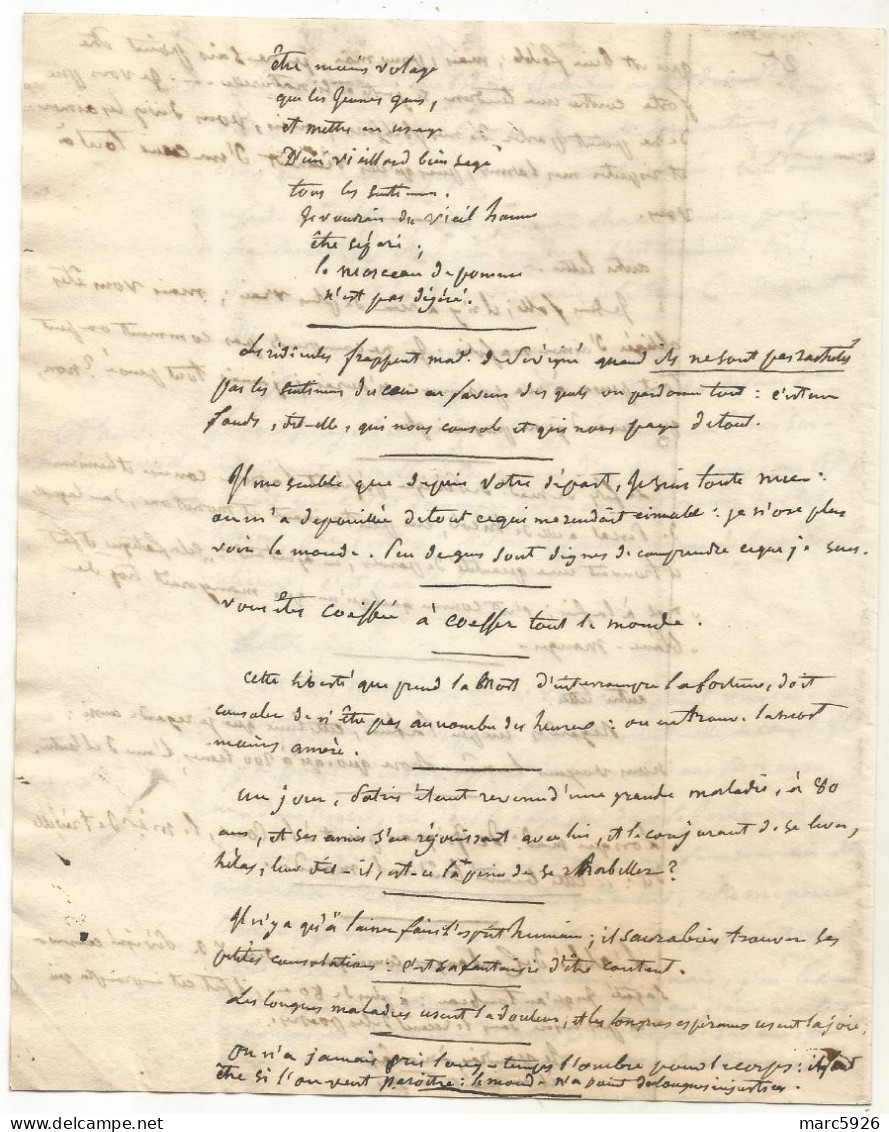 être moins volage
que les jeunes gens,
et mettre en usage
D'un vieillard bien sage
tous les sentimens.
Je voudrais du vieil homme
être séparé ;
le morceau de pomme
n'est pas digéré.
Les ridicules frappent mad. de Sévigné quand ils ne sont pas rachetés
par les sentimens du coeur en faveur des quels on pardonne tout : c'est un
fonds, dit-elle, qui nous console et qui nous paye de tout.
Il me semble que depuis votre départ, je suis toute nue :
on m'a dépouillée de tout ce qui me rendait aimable : je n'ose plus
voir le monde. Peu de gens sont dignes de comprendre ce que je sens.
vous êtes coeffée à coeffer tout le monde.
cette liberté que prend la Mort d'interrompre la fortune, doit
consoler de n'être pas au nombre des heureux : on en trouve la mort
moins amère.
un jour, Patris étant revenu d'une grande maladie, à 80
ans, et ses amis s'en réjouissant avec lui, et le conjurant de se lever,
hélas, leur dit-il, est-ce la peine de se rhabiller ?
Il n'y a qu'à laisser faire l'esprit humain ; il saura bien trouver ses
petites consolations : c'est sa fantaisie d'être content.
Les longues maladies usent la douleur, et les longues espérances usent la joie.
on n'a jamais pris long-temps l'ombre pour le corps : il faut
être si l'on veut paroître : le monde n'a point de longues injustices.
marc5926